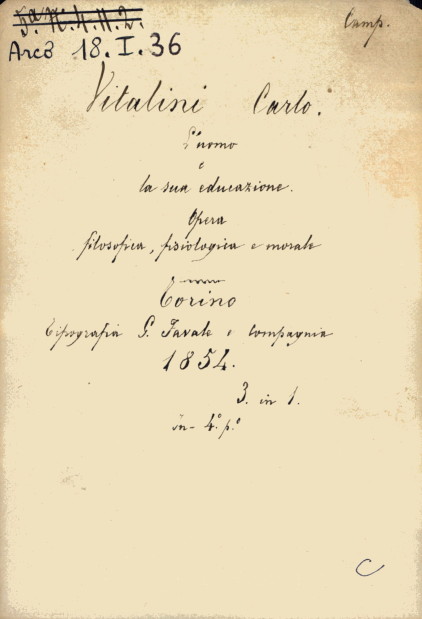 5ª N. 4. H. 2.
Camp.
Arc3 18.I.36
Vitalini Carlo.
L'uomo
e
la sua educazione.
Opera
filosofica, fisiologica e morale
Torino
Tipografia G. Favale e Compagnia
1854.
3. in 1.
in-4º p.º
C